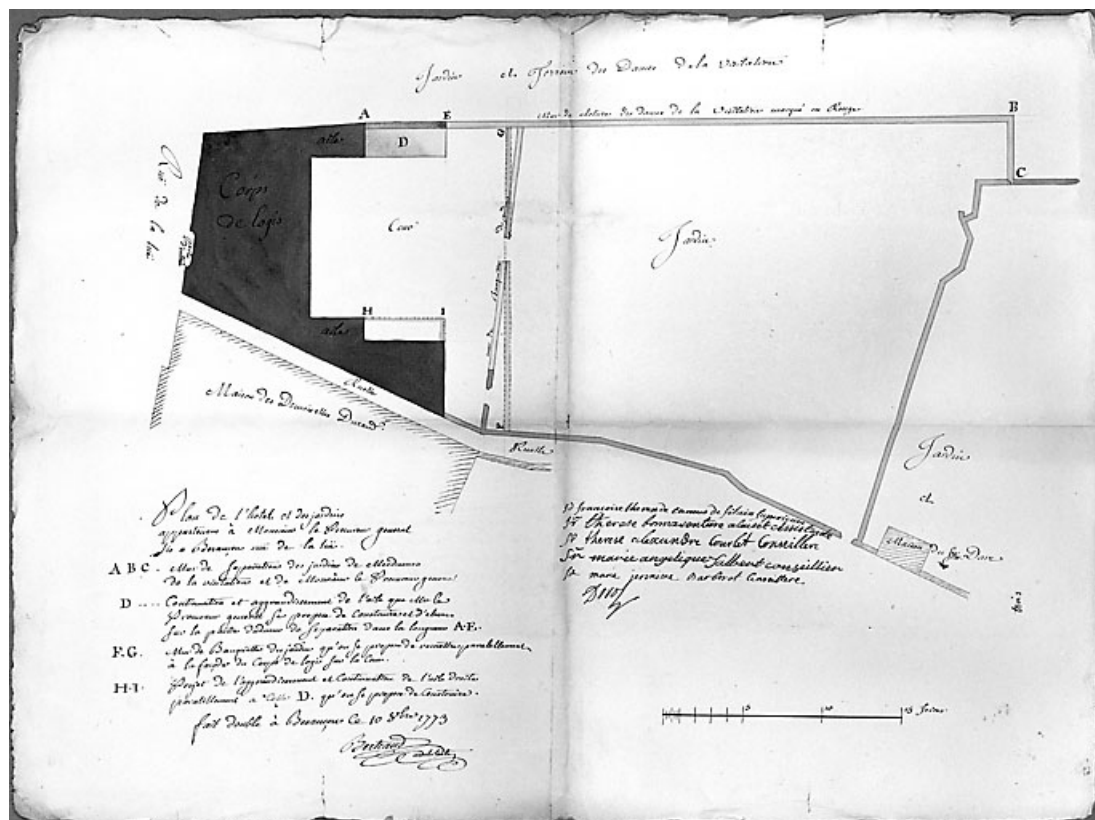 Jardin et Terrein des Dames de la Visitation
Mur de cloture des dames de la Visitation marqué en Rouge
A
E
B
C
D
aile
Corps
de logis
Cour
Jardin
G
H
I
aile
F
Ruelle
Maison des Demoiselles Durand
Ruelle
Jardin
et
Maison du Sr
Plan de l'hotel et des jardins
appartenans à Monsieur le Procureur general
à Besançon rue de la
A B C. Mur de Separation des jardins de Mesdames
de la visitation et de Monsieur le Procureur general
D .... Continuation et aggrandissement de l'aile que Mr le
Procureur general se propose de Construire et d'élever
sur la partie du mur de separation dans la longueur A-E.
F.G. Mur de des jardins qu'on se propose de remettre parallelement
à la façade du Corps de logis sur la Cour.
H-I. Projet de l'aggrandissement et Continuation de l'aile droite
parallelement à Celle D. qu'on se propose de Construire.
fait double à Besançon Ce 10 8bre 1773
Bertrand
Sr françoise de camus de
Sr therese bonnaventure assistante
Sr therese alexandre Courlet Conseillere
Sr marie angelique conseillere
Sr marie Conseillere
5
10
15 Toises